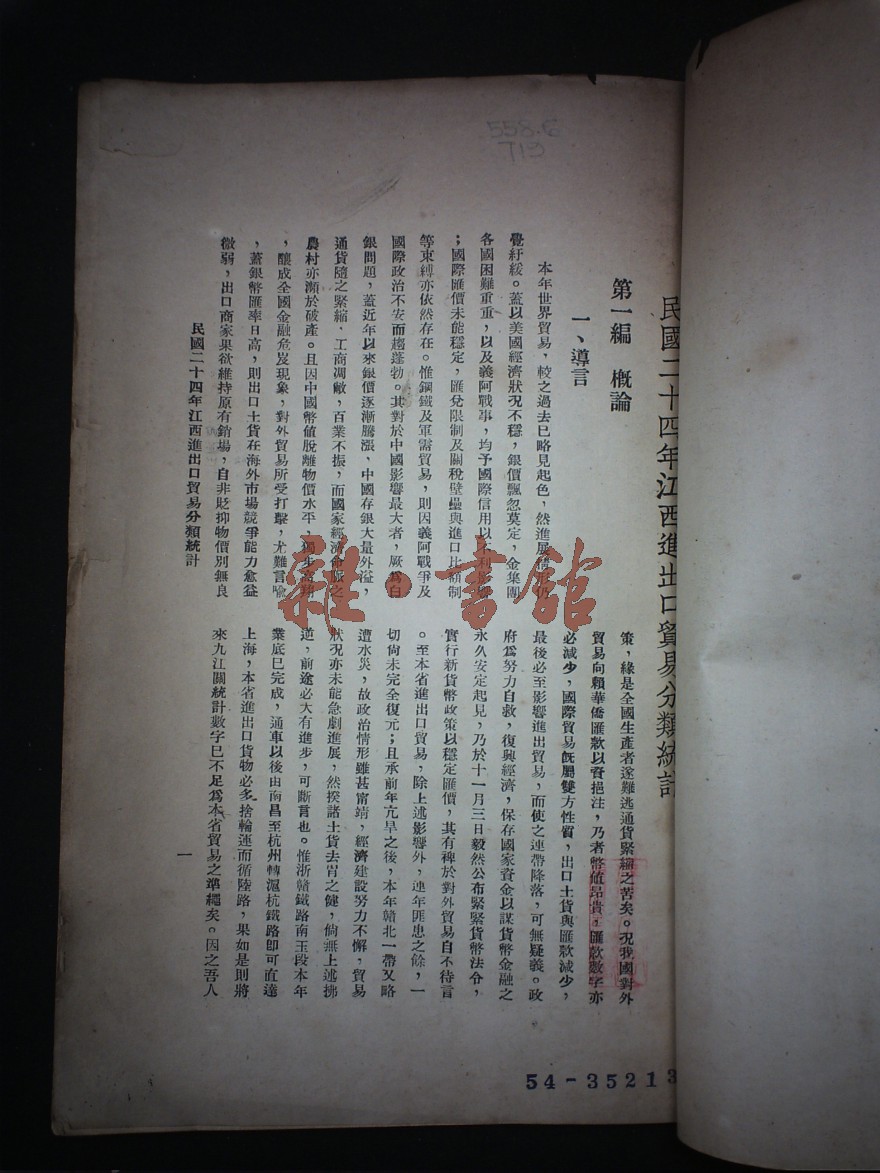 558.6
T19
民國二十四年江西進出口貿易分類統計
第一編 概論
一、導言
本年世界貿易，較之過去已略見起色，然進展情形仍
覺紆緩。蓋以美國經濟狀況不穩，銀價飄忽莫定，金集團
各國困難重重，以及義阿戰事，均予國際信用以不利影響
；國際匯價未能穩定，匯兌限制及關稅壁壘與進口比額制
等束縛亦依然存在。惟鋼鐵及軍需貿易，則因義阿戰爭及
國際政治不安而趨蓬勃。其對於中國影響最大者，厥為白
銀問題，蓋近年以來銀價逐漸騰漲，中國存銀大量外溢，
通貨隨之緊縮，工商凋敝，百業不振，而國家經濟命脈之
農村亦瀕於破產。且因中國幣值脫離物價水平，獨步高翔
，釀成全國金融危岌現象，對外貿易所受打擊，尤難言喻
，蓋銀幣匯率日高，則出口土貨在海外市場競爭能力愈益
微弱，出口商家果欲維持原有銷場，自非貶抑物價別無良
策，緣是全國生產者遂難逃通貨緊縮之苦矣。況我國對外
貿易向賴華僑匯款以資挹注，乃者幣值昂貴，匯款數字亦
必減少，國際貿易既屬雙方性質，出口土貨與匯款減少，
最後必至影響進出貿易，而使之連帶降落，可無疑義。政
府為努力自救，復興經濟，保存國家資金以謀貨幣金融之
永久安定起見，乃於十一月三日毅然公布緊緊貨幣法令，
實行新貨幣政策以穩定匯價，其有裨於對外貿易自不待言
。至本省進出口貿易，除上述影響外，連年匪患之餘，一
切尚未完全復元；且承前年亢旱之後，本年贛北一帶又略
遭水災，故政治情形雖甚甯靖，經濟建設努力不懈，貿易
狀況亦未能急劇進展，然揆諸土貨去胃之健，倘無上述拂
逆，前途必大有進步，可斷言也。惟浙贛鐵路南玉段本年
業底已完成，通車以後由南昌至杭州轉滬杭鐵路卽可直達
上海，本省進出口貨物必多捨輪運而循陸路，果如是則將
來九江關統計數字已不足為本省貿易之準繩矣。因之吾人
民國二十四年江西進出口貿易分類統計
一
雜·書館
54-35213